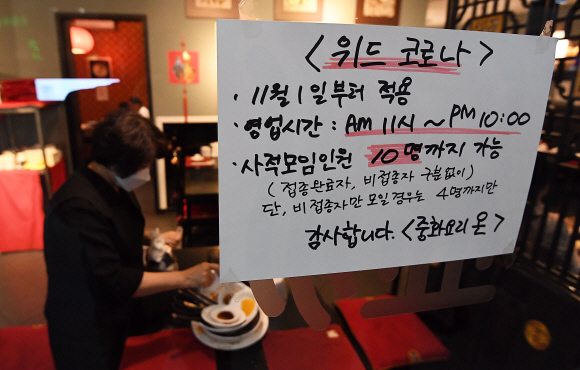 <위드 코로나>
· 11월 1일부터 적용
· 영업시간 : AM 11시 ~ PM 10:00
· 사적모임인원 10명까지 가능
(접종완료자, 비접종자 구분없이)
단, 비접종자만 모일경우는 4명까지만
감사합니다. <중화요리 온>